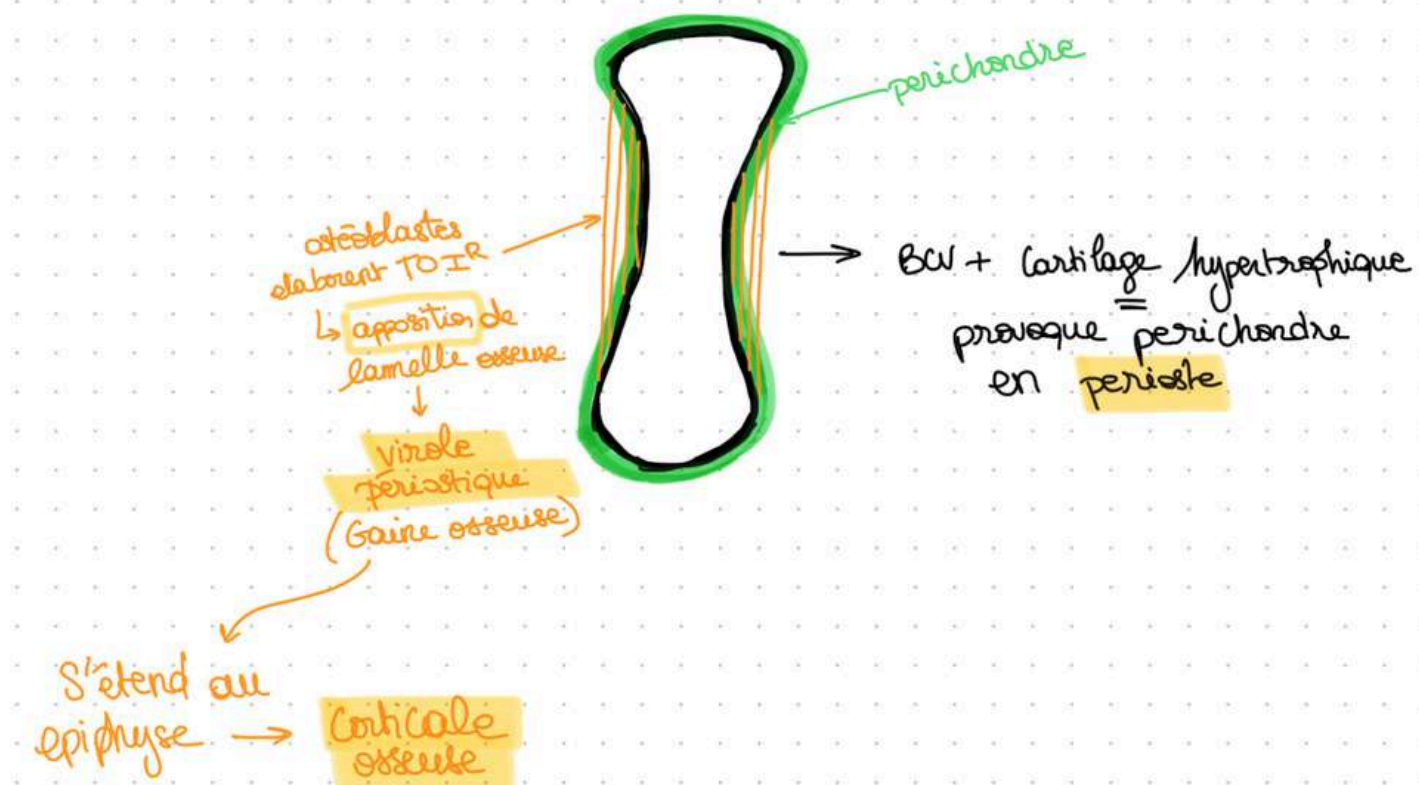 perichondre
ostéoblastes
elaborent TOI^R
↳ apposition de
lamelle osseuse
↓
virole
périostique
(Gaine osseuse)
S'étend au
epiphyse → Corticale
osseuse
→ BCV + Cartilage hypertrophique
=
provoque perichondre
en perioste